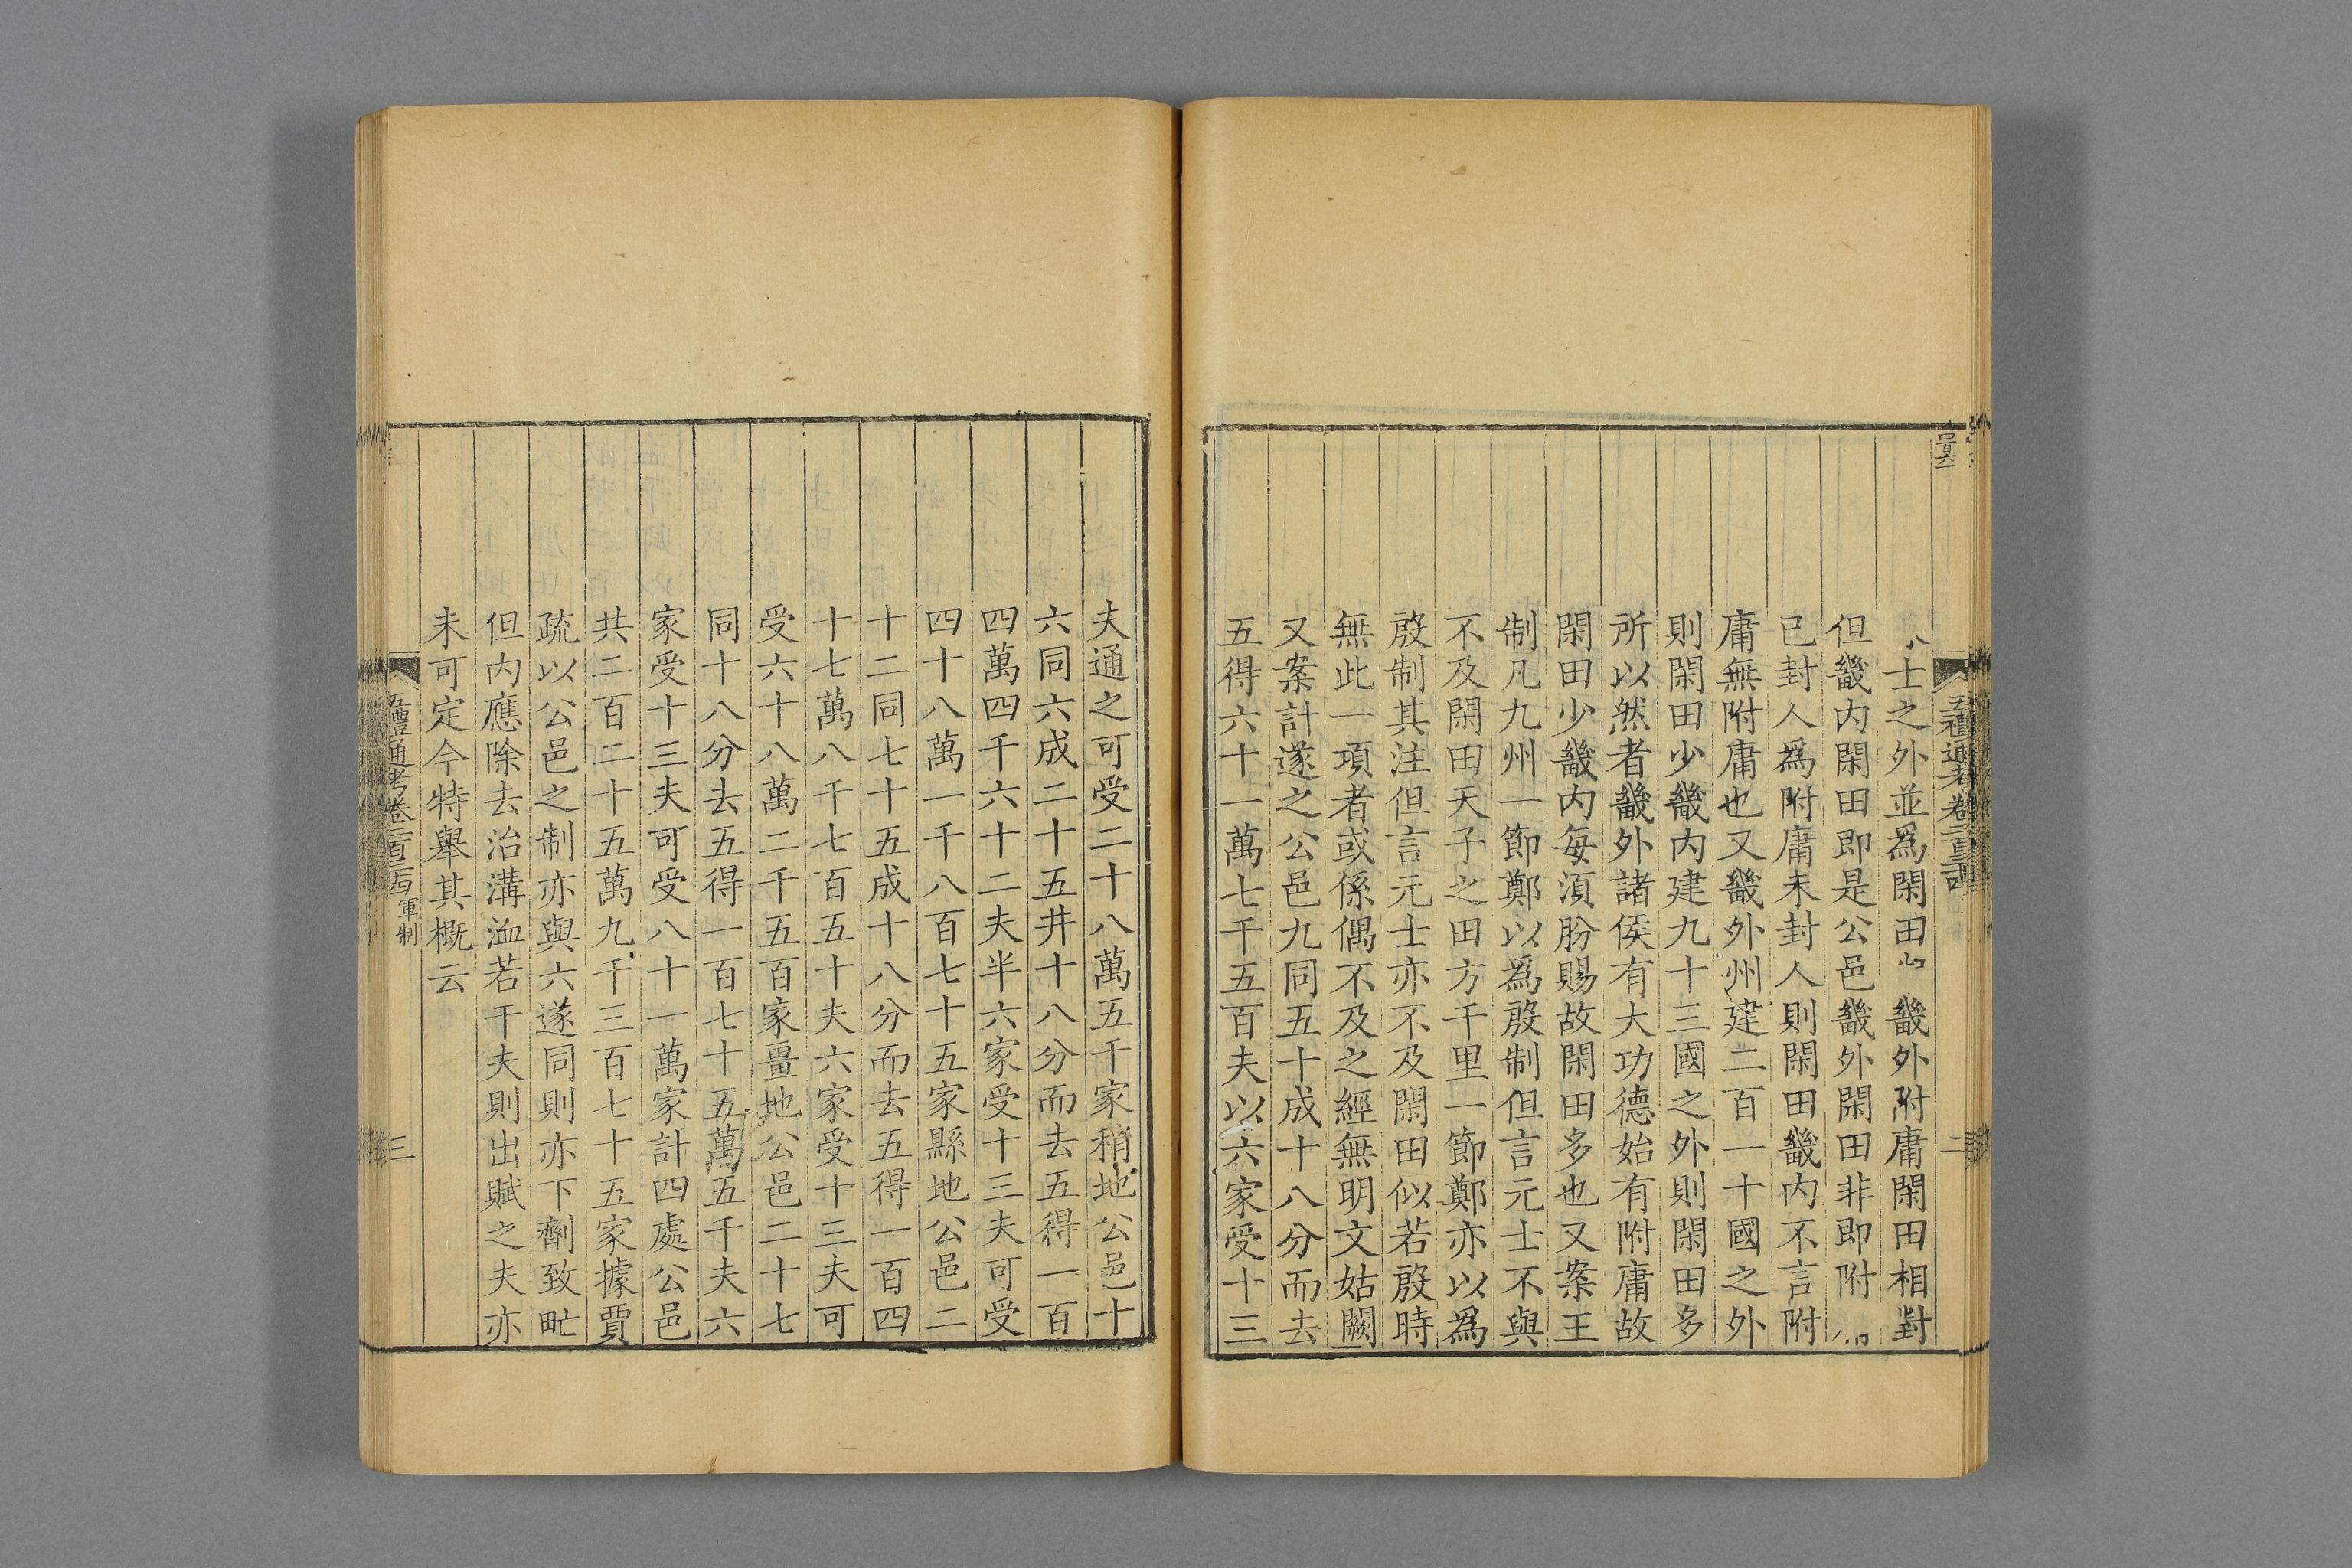 士之外並爲閑田 畿外附庸閑田相對
但畿内閑田即是公邑畿外閑田非即附
已封人爲附庸未封人則閑田畿内不言附
庸無附庸也又畿外州建二百一十國之外
則閑田少畿内建九十三國之外則閑田多
所以然者畿外諸侯有大功德始有附庸故
閑田少畿内每須朌賜故閑田多也又案王
制凡九州一節鄭以爲殷制但言元士不與
不及閑田天子之田方千里一節鄭亦以爲
殷制其注但言元士亦不及閑田似若殷時
無此一項者或係偶不及之經無明文姑闕
又案計遂之公邑九同五十成十八分而去
五得六十一萬七千五百夫以六家受十三
五禮通考卷二百三十四
二
夫通之可受二十八萬五千家稍地公邑十
六同六成二十五井十八分而去五得一百
四萬四千六十二夫半六家受十三夫可受
四十八萬一千八百七十五家縣地公邑二
十二同七十五成十八分而去五得一百四
十七萬八千七百五十夫六家受十三夫可
受六十八萬二千五百家畺地公邑二十七
同十八分去五得一百七十五萬五千夫六
家受十三夫可受八十一萬家計四處公邑
共二百二十五萬九千三百七十五家據賈
疏以公邑之制亦與六遂同則亦下劑致甿
但内應除去治溝洫若干夫則出賦之夫亦
未可定今特舉其概云
五禮通考卷二百三十四 軍制
三